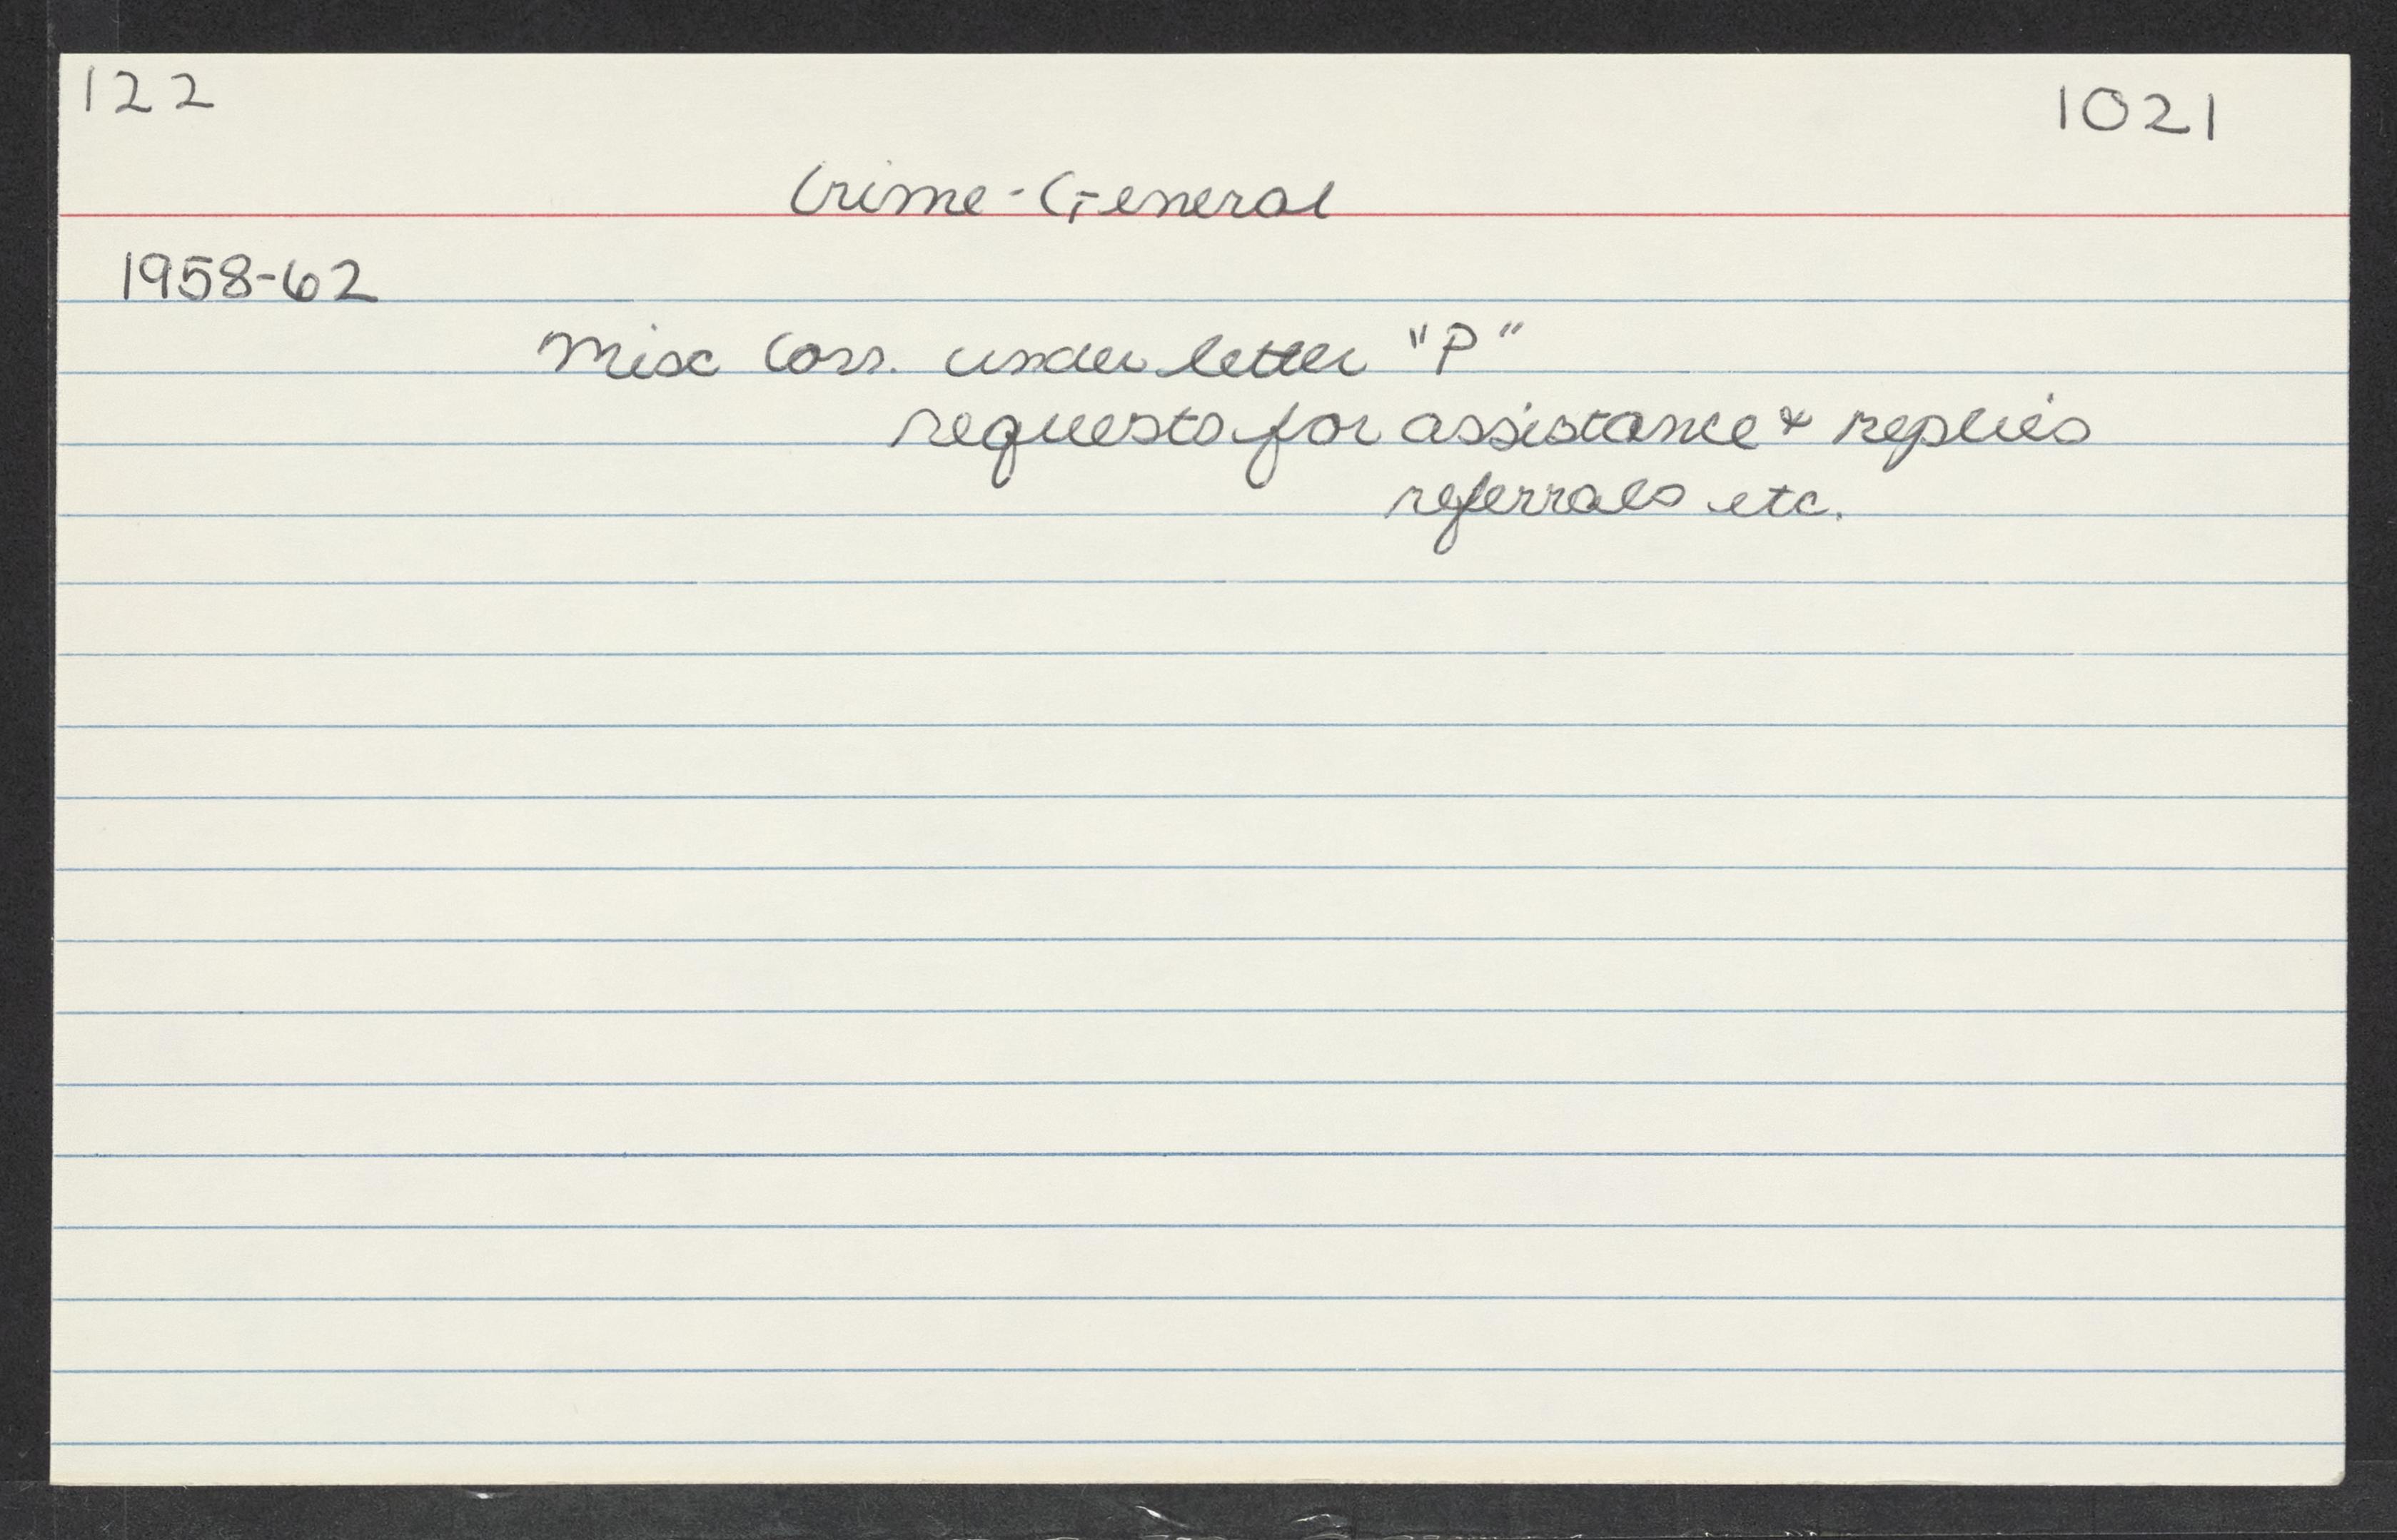 122
1021
Crime-General
1958-62
Misc Corr. under letter "P"
requests for assistance & replies
referrals etc.